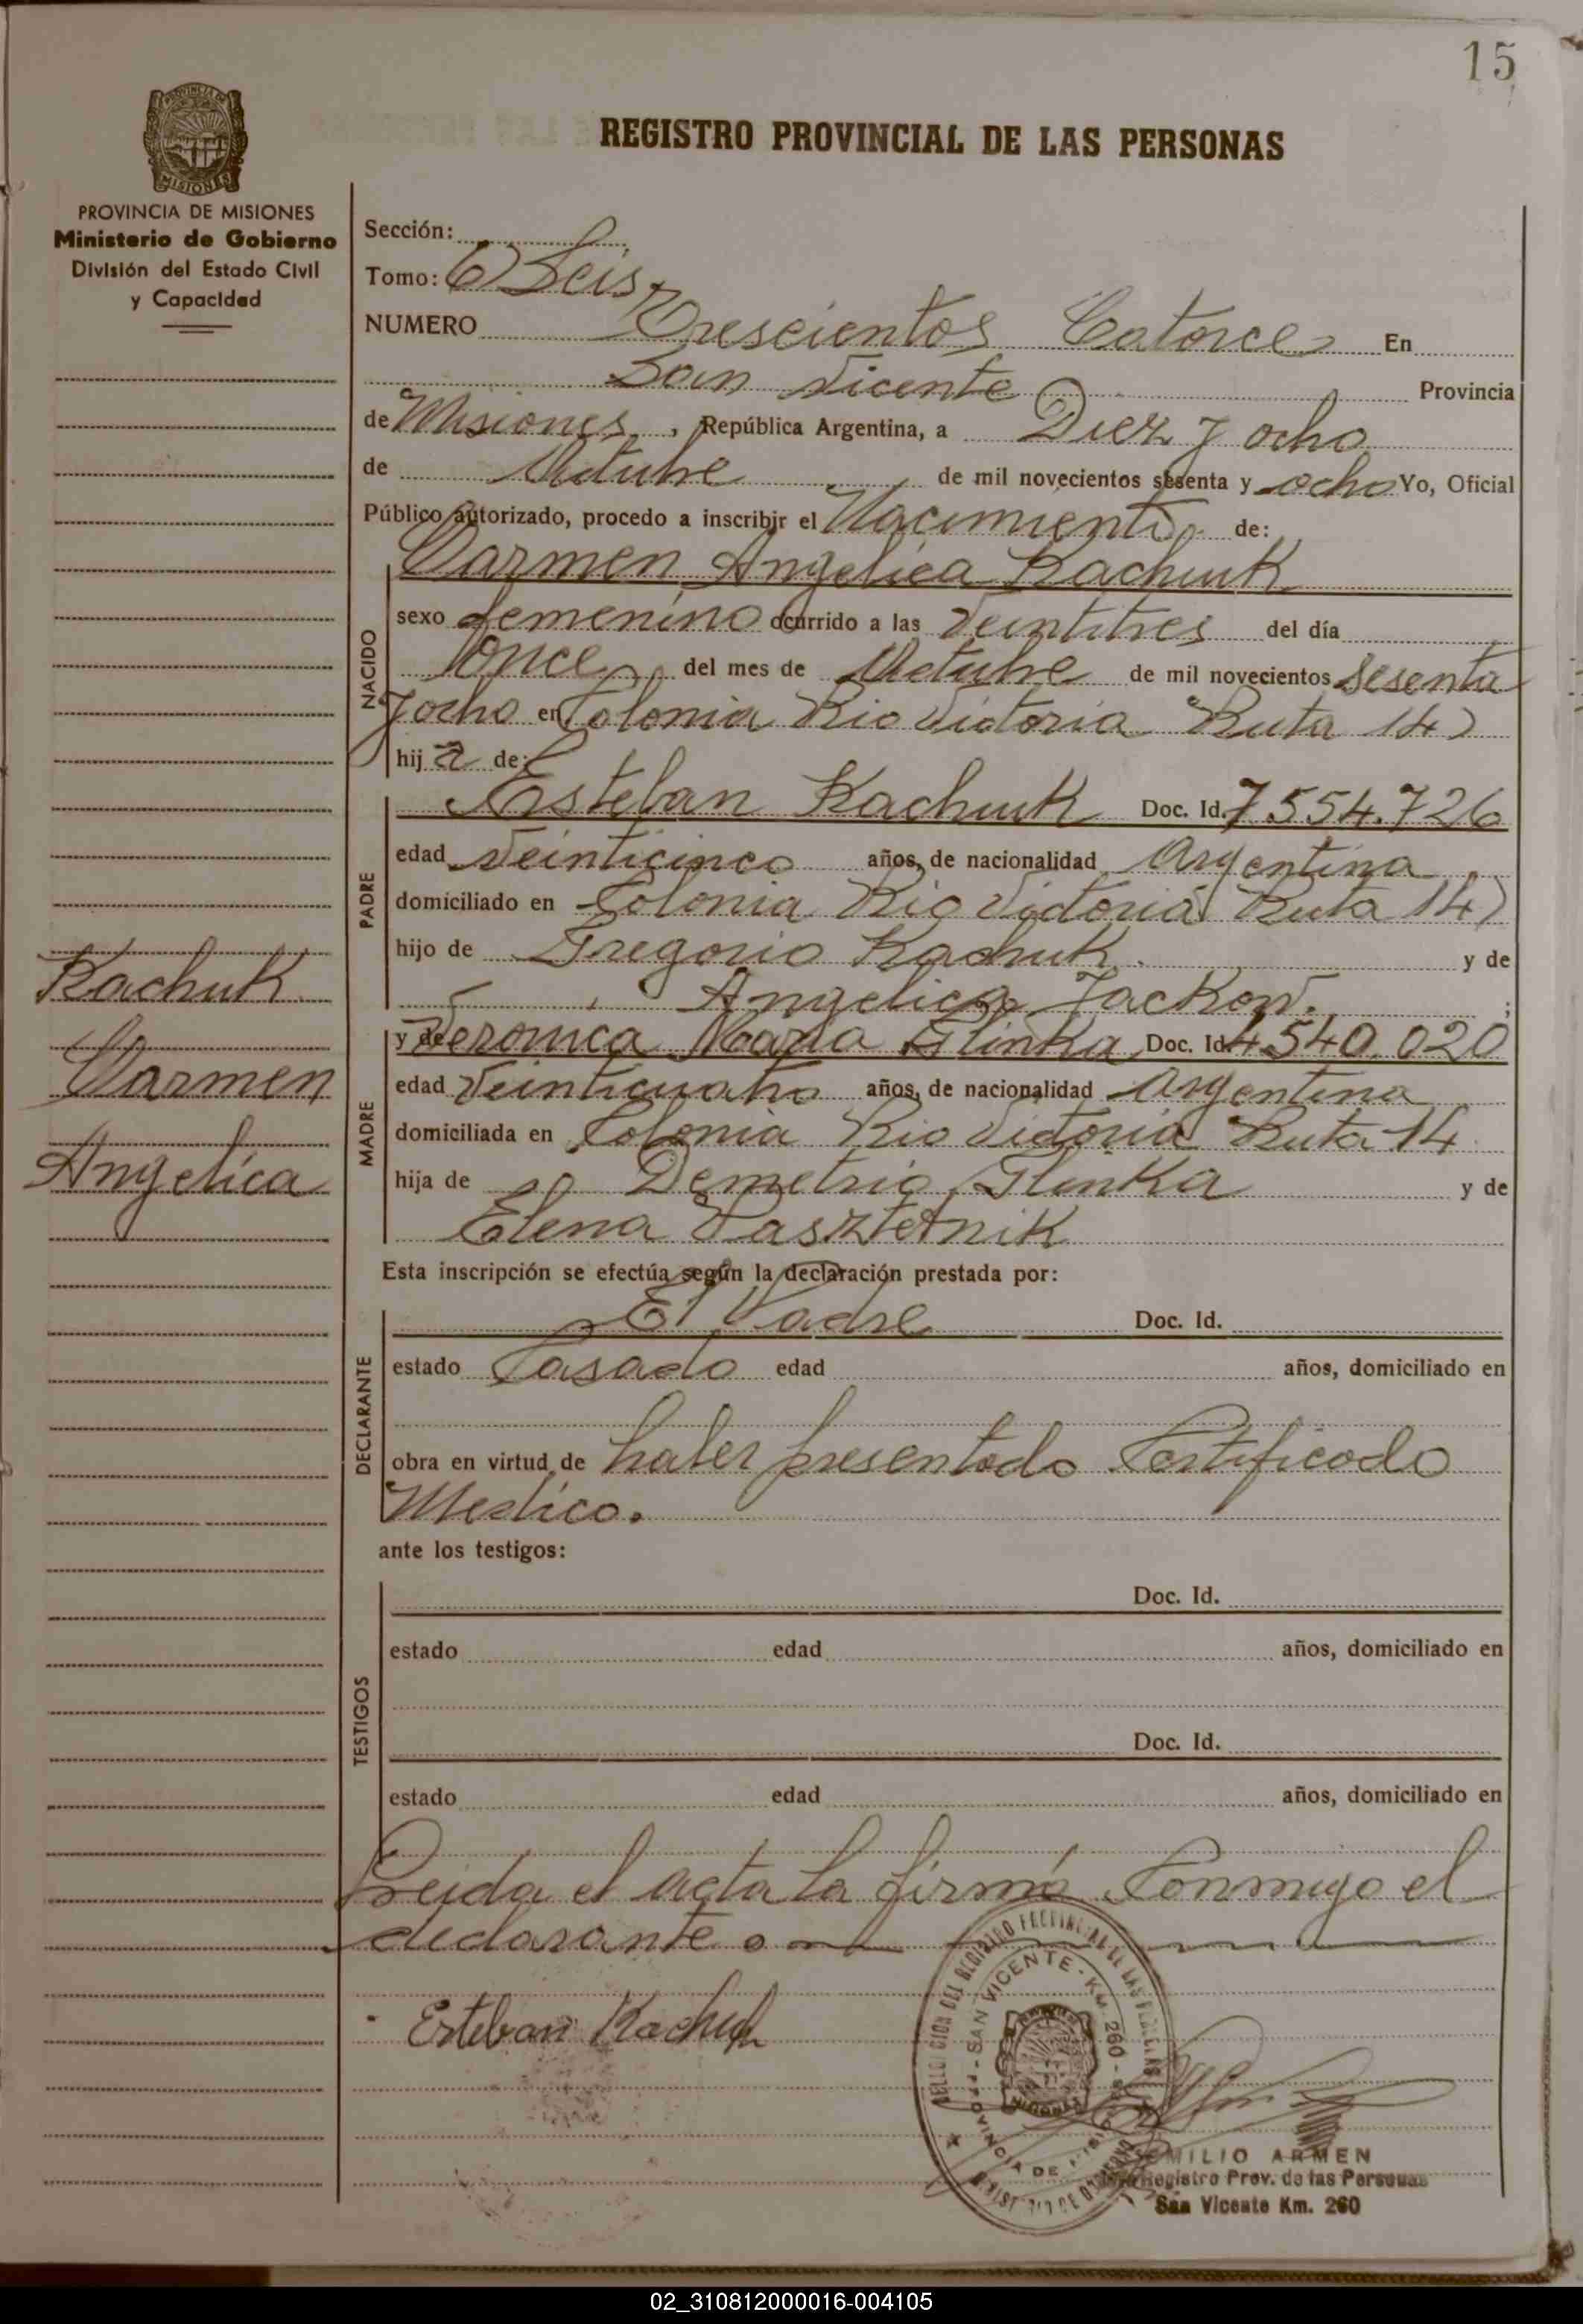 15
REGISTRO PROVINCIAL DE LAS PERSONAS
PROVINCIA DE MISIONES
Ministerio de Gobierno
División del Estado Civil
y Capacidad
Sección:
Tomo: 6) Seis
NUMERO Trescientos Catorce En
San Vicente Provincia
de Misiones, República Argentina, a Diez y ocho
de Octubre de mil novecientos sesenta y ocho Yo, Oficial
Público autorizado, procedo a inscribir el Nacimiento de:
Carmen Angelica Kachuk
NACIDO
sexo femenino ocurrido a las veintitres del día
once del mes de Octubre de mil novecientos sesenta
y ocho en Colonia Rio Victoria Ruta 14)
hij a de:
PADRE
Esteban Kachuk Doc. Id. 7.554.726
edad veinticinco años, de nacionalidad Argentina
domiciliado en Colonia Rio Victoria Ruta 14)
hijo de Gregorio Kachuk. y de
Angelica Jackow. ;
MADRE
y de Veronica Maria Glinka Doc. Id. 4.540.020
edad veinticuatro años, de nacionalidad Argentina
domiciliada en Colonia Rio Victoria Ruta 14
hija de Demetrio Glinka y de
Elena Pasztetnik
Kachuk
Carmen
Angelica
Esta inscripción se efectúa según la declaración prestada por:
DECLARANTE
El Padre Doc. Id.
estado Casado edad años, domiciliado en
obra en virtud de haber presentado Certificado
Medico.
ante los testigos:
TESTIGOS
Doc. Id.
estado edad años, domiciliado en
Doc. Id.
estado edad años, domiciliado en
Leida el acta la firmó Conmigo el
declarante
Esteban Kachuk
SAN VICENTE - KM. 260
PROVINCIA DE MISIONES
EMILIO ARMEN
Registro Prov. de las Personas
San Vicente Km. 260
02_310812000016-004105